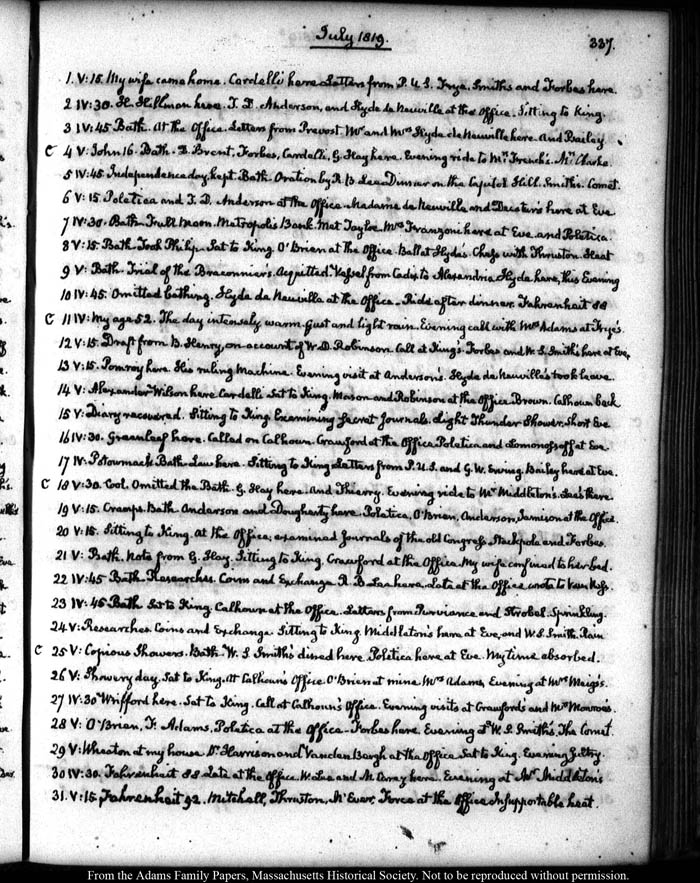 July 1819.
337.
1. V:15. My wife came home. Cardelli here Letters from P.U.S. Frye. Smiths and Forbes here.
2 IV:30. H. Hillman here. T. D. Anderson, and Hyde de Neuville at the Office. Sitting to King
3 IV:45 Bath. At the Office. Letters from Prevost. Mr and Mrs Hyde de Neuville here. And Bailey
C 4 V: John 16. Bath. D. Brent, Forbes, Cardelli, G. Hay here. Evening ride to Mr French's. Mr Clarke.
5 IV:45 Independence day kept. Bath. Oration by R. B. Lee Dinner on the Capitol Hill. Smiths. Comet.
6 V:15 Poletica and T. D. Anderson at the Office. Madame de Neuville and here at Eve
7 IV:30. Bath Full Moon. Metropolis Bank. Met Tayloe. Mrs Franzoni here at Eve. and Poletica.
8 V:15. Bath. Took Philip. Sat to King. O'Brien at the Office. Ball at Hyde's. Chess with Thruston. Heat
9 V: Bath. Trial of the Braconniers. Acquitted. Vessel from Cadiz to Alexandria Hyde here, this Evening
10 IV:45. Omitted bathing. Hyde de Neuville at the Office. Ride after dinner. Fahrenheit 88
C 11 IV: My age 52. The day intensely warm. Gust and light rain. Evening call with Mrs Adams at Frye's.
12 V:15. Draft from B. Henry, on account of W. D. Robinson. Call at King's. Forbes and W. S. Smith's here at Eve,
13 V:15. Pomroy here. His ruling Machine. Evening visit at Anderson's. Hyde de Neuville's took leave.
14 V: Alexander Wilson here Cardelli Sat to King. Mason and Robinson at the Office Brown. Calhoun back
15 V: Diary recovered. Sitting to King Examining Secret Journals. Light Thunder Shower, Short Eve
16 IV:30. Greenleaf here. Called on Calhoun. Crawford at the Office. Poletica and Lomonossoff at Eve
17 IV: Potowmack Bath. Law here. Sitting to King Letters from P.U.S. and G. W. Erving. Bailey here at Eve.
C 18 V:30. Cool. Omitted the Bath. G. Hay here. And Thierry. Evening ride to Mr Middleton's. Lee's there
19 V:15. Cramps. Bath Anderson and Dougherty here. Poletica, O'Brien, Anderson, Jamison at the Office.
20 V:15. Sitting to King. At the Office, examined Journals of the old Congress, Stackpole and Forbes.
21 V: Bath. Note from G. Hay. Sitting to King. Crawford at the Office. My wife confined to her bed.
22 IV:45 Bath Researches. Coins and Exchange R. B. Lee here. Late at the Office wrote to
23 IV:45 Bath Sat to King. Calhoun at the Office. Letters from Purviance and Strobel. Sprinkling.
24 V: Researches. Coins and Exchange. Sitting to King. Middleton's here at Eve, and W. S. Smith. Rain
C 25 V: Copious Showers. Bath. W. S. Smith's dined here Poletica here at Eve. My time absorbed.
26 V: Showery day. Sat to King. At Calhoun's Office. O'Brien at mine. Mrs Adams, Evening at Mrs Meigs's.
27 IV:30 Wrifford here. Sat to King. Call at Calhoun's Office. Evening visits at Crawford's and Mr Monroe's.
28 V: O'Brien, F. Adams, Poletica at the Office. Forbes here. Evening at W. S. Smith's, The Comet.
29 V: Wheaton at my house. Dr Harrison and Vanden Bergh at the Office Sat to King. Evening Sultry.
30 IV:30. Fahrenheit 88 Late at the Office. W. Lee and M. Carey here. Evening at Mr Middleton's
31. V:15 Fahrenheit 92. Mitchell, Thruston, McEwer, Force at the Office Insupportable heat.
From the Adams Family Papers, Massachusetts Historical Society. Not to be reproduced without permission.